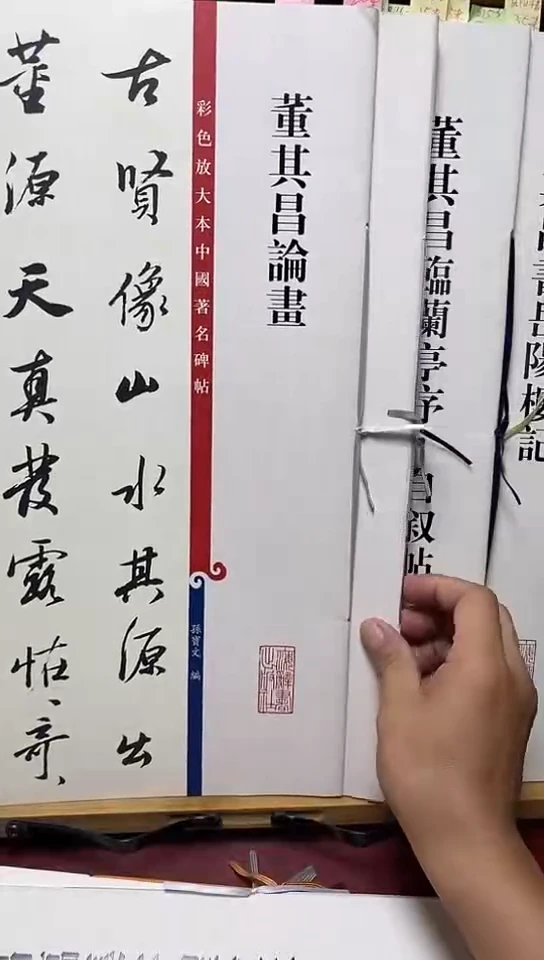 昌書岳陽樓記
董其昌臨蘭亭序 自叙帖
董其昌論畫
彩色放大本中國著名碑帖
孫寶文 編
古賢像山水其源出
董源天真發露恠奇